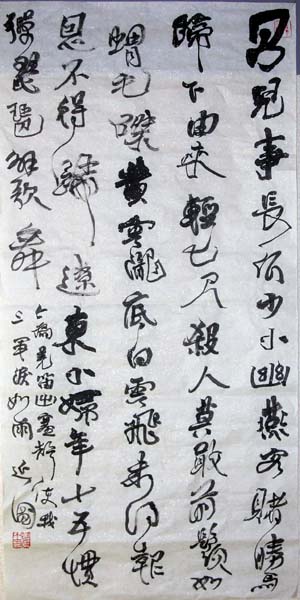 男兒事長征少小幽燕客賭勝馬
蹄下由來輕七尺殺人莫敢前鬚如
蝟毛磔黃雲隴底白雲飛未得報
恩不得歸遼東小婦年十五慣
彈琵琶解歌舞
今為羌笛出塞聲使我
三軍淚如雨